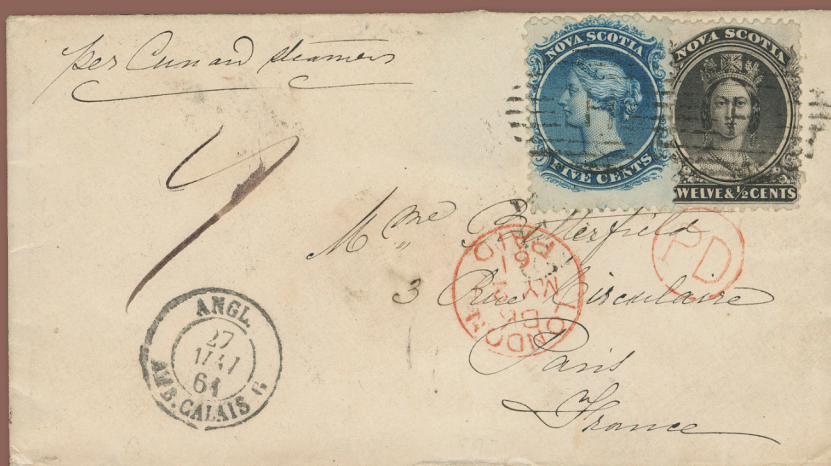 per Cunard steamers
NOVA SCOTIA
FIVE CENTS
NOVA SCOTIA
TWELVE & ½ CENTS
Mme Butterfield
3 Rue Circulaire
Paris
France
PD
LONDON
MY
61
PAID
ANGL.
27
MAI
61
AMB. CALAIS